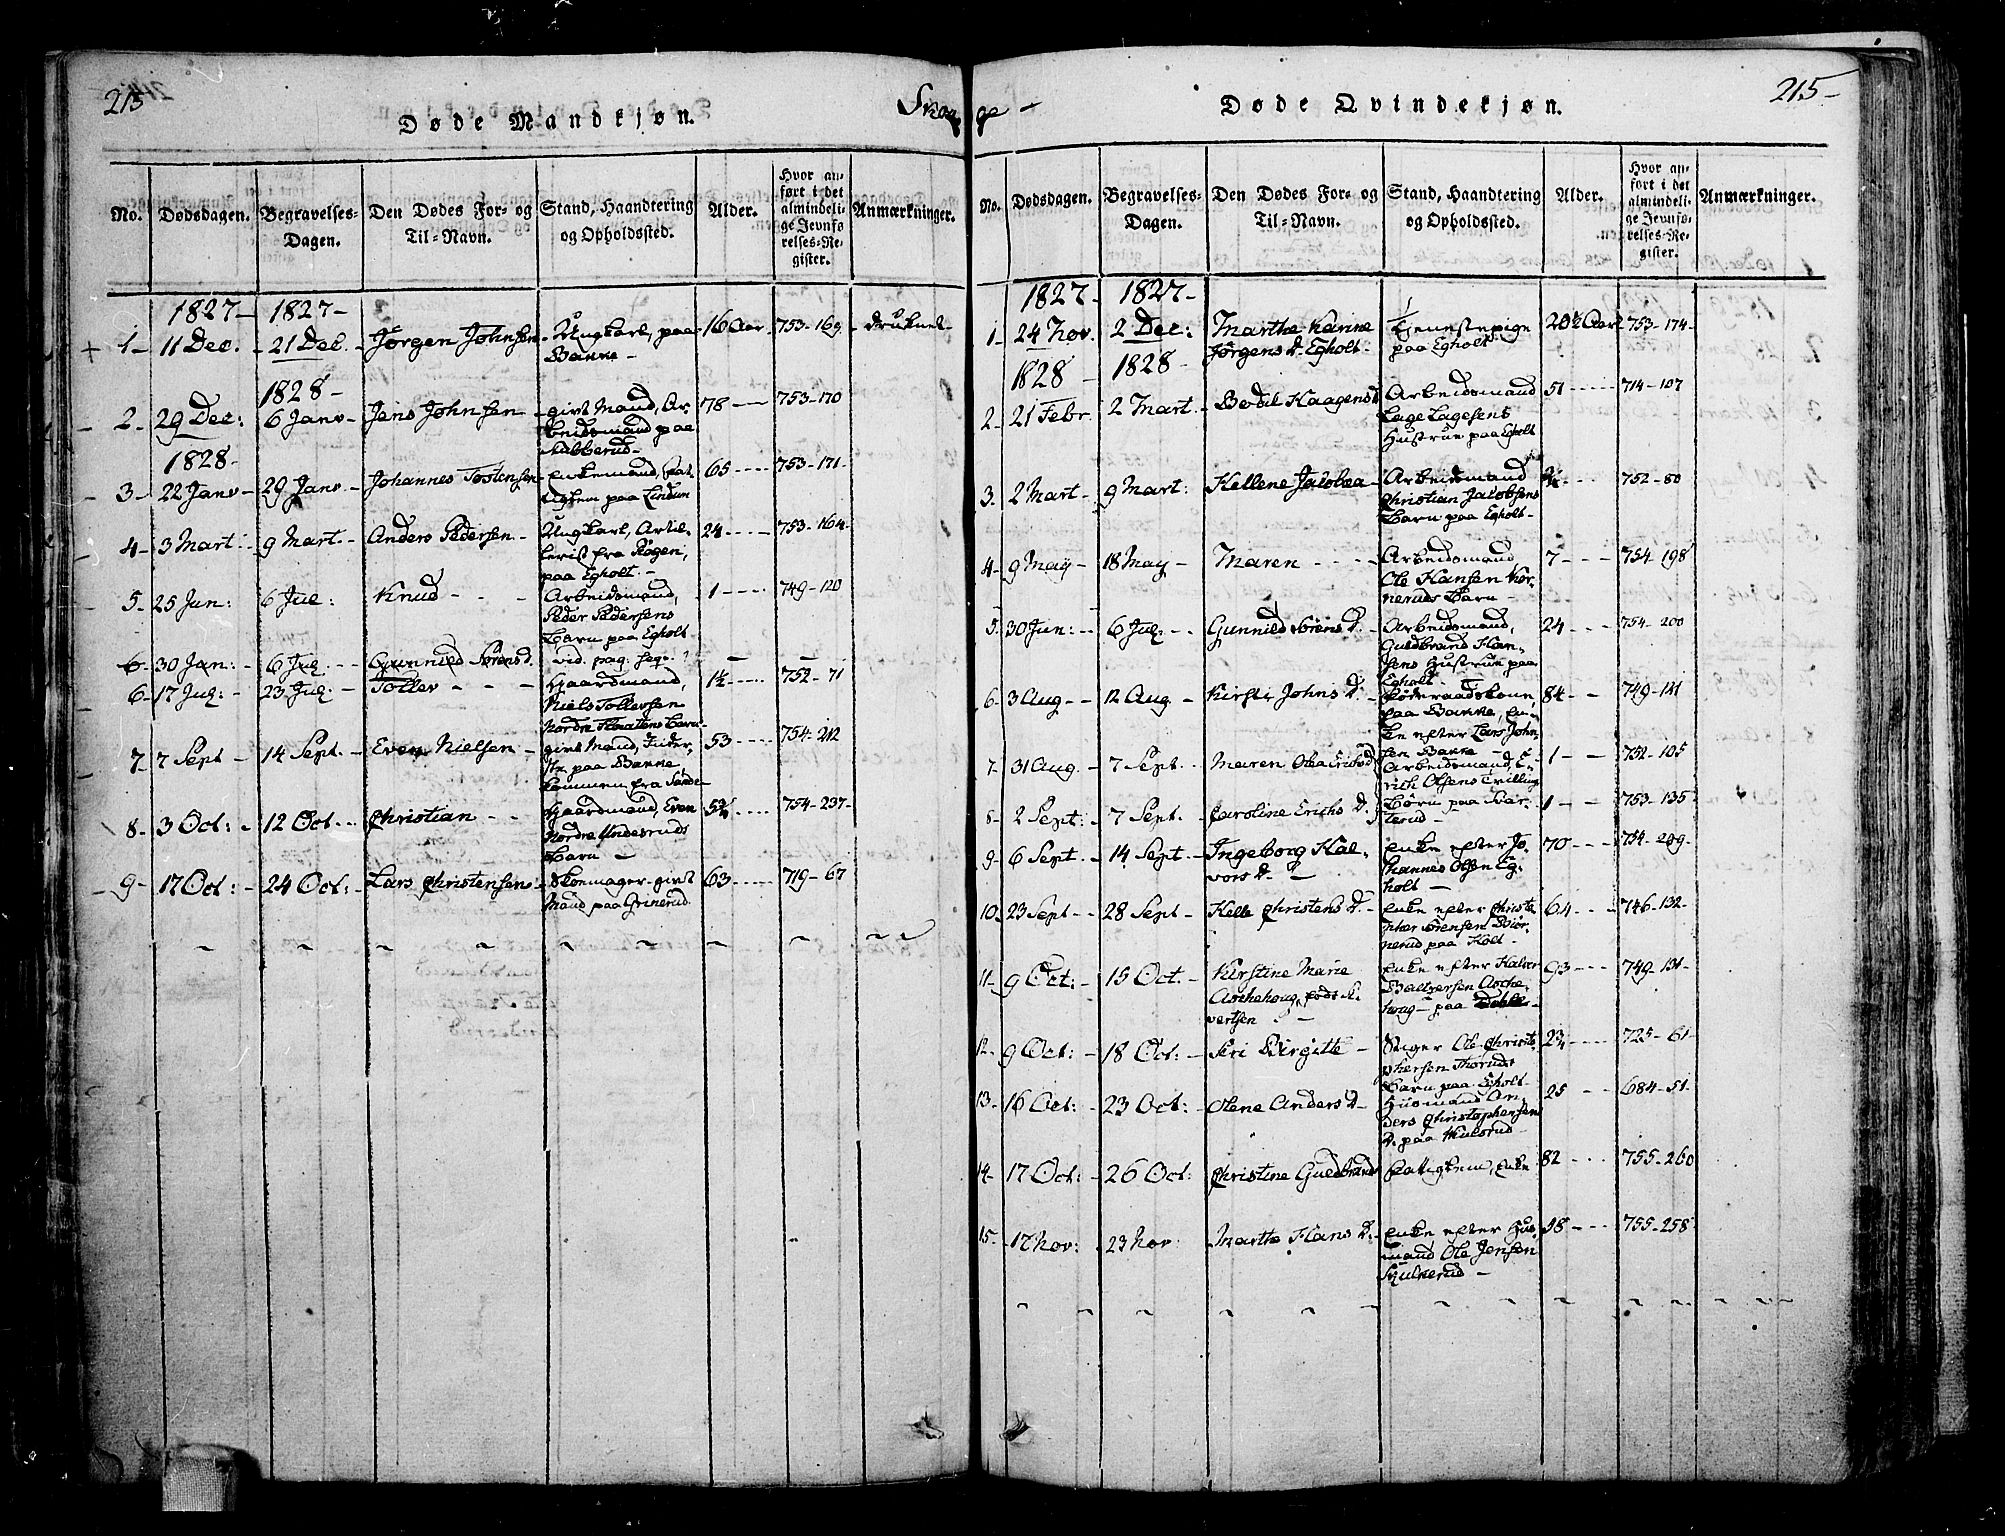 215
Skog - ge -
215 -
Døde Mandkjøn.
No. Dødsdagen. Begravelses-Dagen. Den Dødes For- og Til-Navn. Stand, Haandtering og Opholdssted. Alder. Hvor anført i det almindelige Jevnførelses-Register. Anmærkninger.
1827 - 1827 -
1 - 11 Dec. - 21 Dec. - Jørgen Johnsen - Ungkarl, paa Bakke - 16 Aar - 753-169 - druknet -
1828 -
2 - 29 Dec: 6 Janv - Jens Johnsen - givt Mand, Arbeidsmand paa Stubberud - 78 - 753-170
1828 -
3 - 22 Janv - 29 Janv. - Johannes Tostensen - Enkemand, fatiglem paa Lindum 65 - 753-171 -
4 - 3 Mart: 9 Mart. - Anders Pedersen - Ungkarl, Artillerist fra Skogen, paa Egholt - 24 - 753-164 -
5 - 25 Jun: 6 Jul: - Knud - - - Arbeidsmand, Peder Pedersens Barn paa Egholt 1 - 749-120
6 - 30 Jan: 6 Jul. - Gunnild Sørens d. vid. pag. seqv. - -
6 - 17 Jul: - 23 Jul: - Toller - - - Gaardmand, Niels Tollersen Nordre Flaatens Barn 1½ - 752-71
7 - 7 Sept - 14 Sept. - Even Nielsen - givt Mand, Inderste paa Bakke kommen fra Sande - 53 - 754-212
8 - 3 Oct: - 12 Oct. - Christian - - Gaardmand, Even Nordre Underruds Barn - 754-237 -
9 - 17 Oct: - 24 Oct: - Lars Christensen - Skomager - givt Mand paa Grinerud 63 - 719-67
Døde Qvindekjøn.
No. Dødsdagen. Begravelses-Dagen. Den Dødes For- og Til-Navn. Stand, Haandtering og Opholdssted. Alder. Hvor anført i det almindelige Jevnførelses-Register. Anmærkninger.
1827 - 1827 -
1 - 24 Nov. 2 Dec: Marthe Karine Jørgens d. Egholt - tjenestepige paa Egholt 20½ Aar 753-174 -
1828 - 1828 -
2 - 21 Febr. 2 Mart. - Bodil Haagensd. Arbeidsmand Lage Lagesens Hustrue paa Egholt 51 - 714-107
3 - 2 Mart - 9 Mart: Kellene Jacobea - Arbeidsmand Christian Jacobsens Barn paa Egholt - 752-80
4 - 9 May - 18 May - Maren - Arbeidsmand Ole Hansen Kornerud Barn - 7 - 754-198
5 - 30 Jun: - 6 Jul: - Gunnild Sørens d. - Arbeidsmand, Guldbrand Hansens Hustrue paa Egholt - 24 - 754-200
6 - 3 Aug - - 12 Aug - Kirsti Johns d. - Føderaadskone, paa Bakke, Enke efter Lars Johnsen Bakke - 84 - 749-141
7 - 31 Aug. - 7 Sept. Maren Olea Erichsd. Arbeidsmand, Erich Olsens Tvilling 1 - 752-105
8 - 2 Sept: - 7 Sept. Caroline Erichs d. Børn paa Svarterud - 1 - 753-135 -
9 - 6 Sept - 14 Sept. - Ingeborg Halvors d. - Enke efter Johannes Olsen Egholt - 70 - 754-209 -
10 - 23 Sept - - 28 Sept - Kelle Christens d. - Enke efter Christopher Sørensen Biørnerud paa Holt - 64 - 746-132 -
11 - 9 Oct: - 15 Oct. - Kirstine Marie Aschehoug, født Sivertsen - Enke efter Halvor Baltzersen Aschehoug - paa 93 - 749-131 -
12 - 9 Oct: - 18 Oct: - Siri Birgitte - Ole Christophersen Thoruds Barn paa Egholt - 2¾ - 725-61 -
13 - 16 Oct: - 23 Oct: - Olene Anders d - Huusmand Anders Christophersens d. paa Hulsrud - 25 - 684-51.
14 - 17 Oct: - 26 Oct: Christine Guldbrands Fattiglem, Enke 82 - 755-260
15 - 17 Nov: 23 Nov: Marthe Hans d. - Enke efter Huusmand Ole Jensen Skulkerud - 58 - 755-258 -